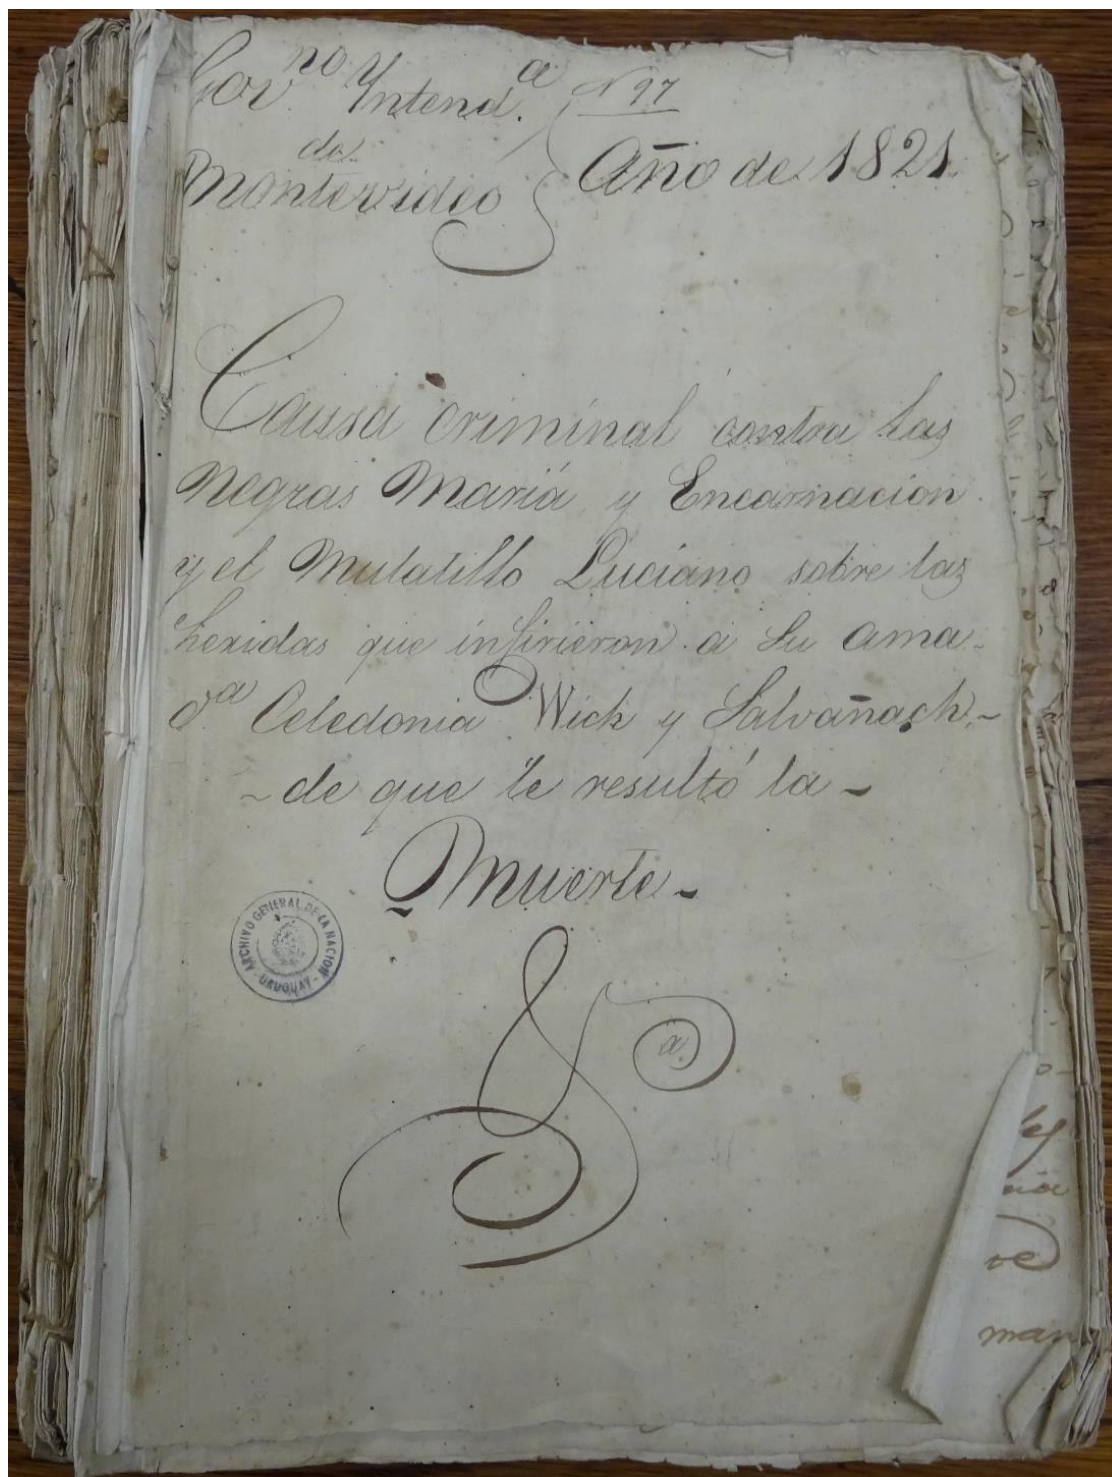 Gov.no Yntend.a
de
Montevideo
N 97
Año de 1821.
Causa criminal contra las
Negras María y Encarnacion
y el Mulatillo Luciano sobre las
heridas que infirieron a su ama
d.a Celedonia Wich y Salvañach,
de que le resultó la
Muerte
ARCHIVO GENERAL DE LA NACION
URUGUAY
a
man